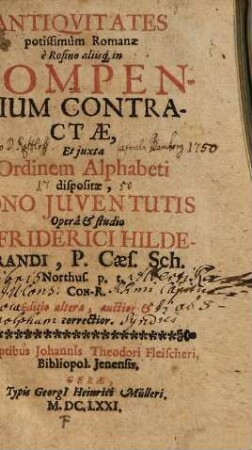 ANTIQVITATES
potissimùm Romanæ
è Rosino aliisq́; in
COMPEN-
DIUM CONTRA-
CTÆ,
Et juxta 1750
Ordinem Alphabeti
17 dispositæ, 50
BONO JUVENTUTIS
Operâ & studio
FRIDERICI HILDE-
BRANDI, P. Cæs. Sch.
Northus. p. t.
CON-R.
Editio altera, auctior &
correctior.
Sumptibus Johannis Theodori Fleischeri,
Bibliopol. Jenensis,
GERÆ,
Typis Georgî Heinrici Mülleri.
M. DC, LXXI.